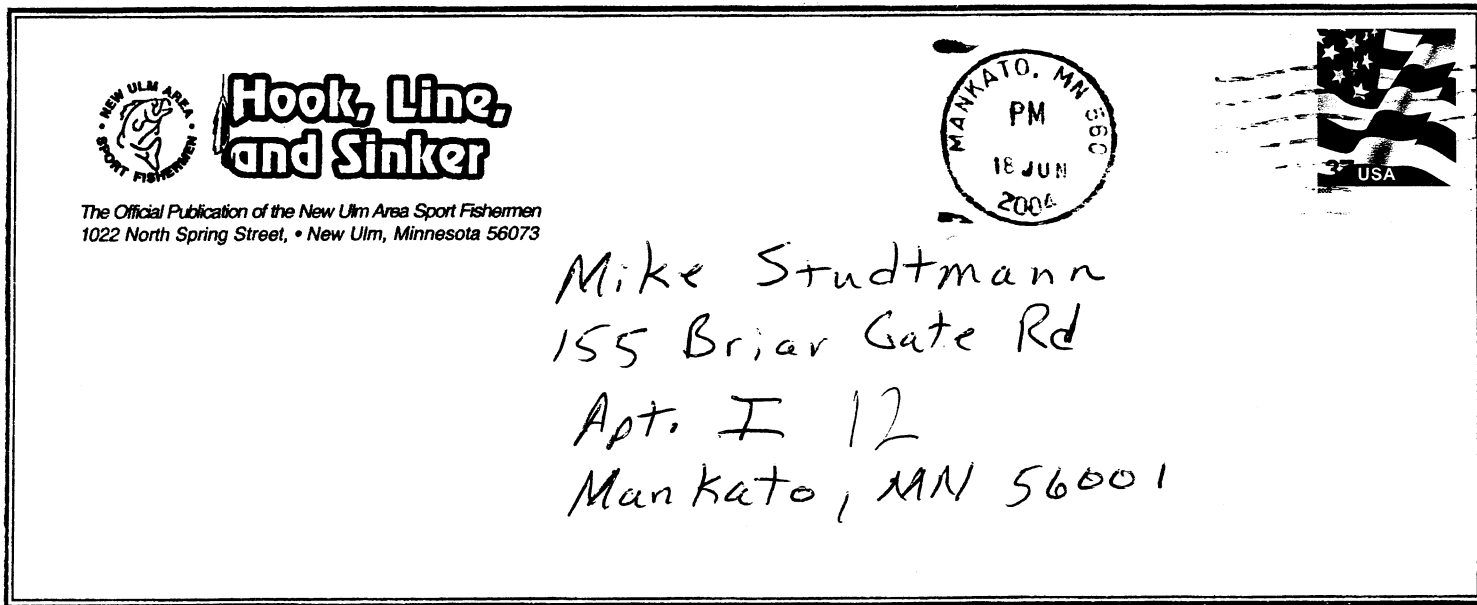 NEW ULM AREA
• SPORT FISHERMEN •
Hook, Line,
and Sinker
The Official Publication of the New Ulm Area Sport Fishermen
1022 North Spring Street, • New Ulm, Minnesota 56073
MANKATO, MN 560
PM
18 JUN
2004
37 USA
Mike Studtmann
155 Briar Gate Rd
Apt. I 12
Mankato, MN 56001